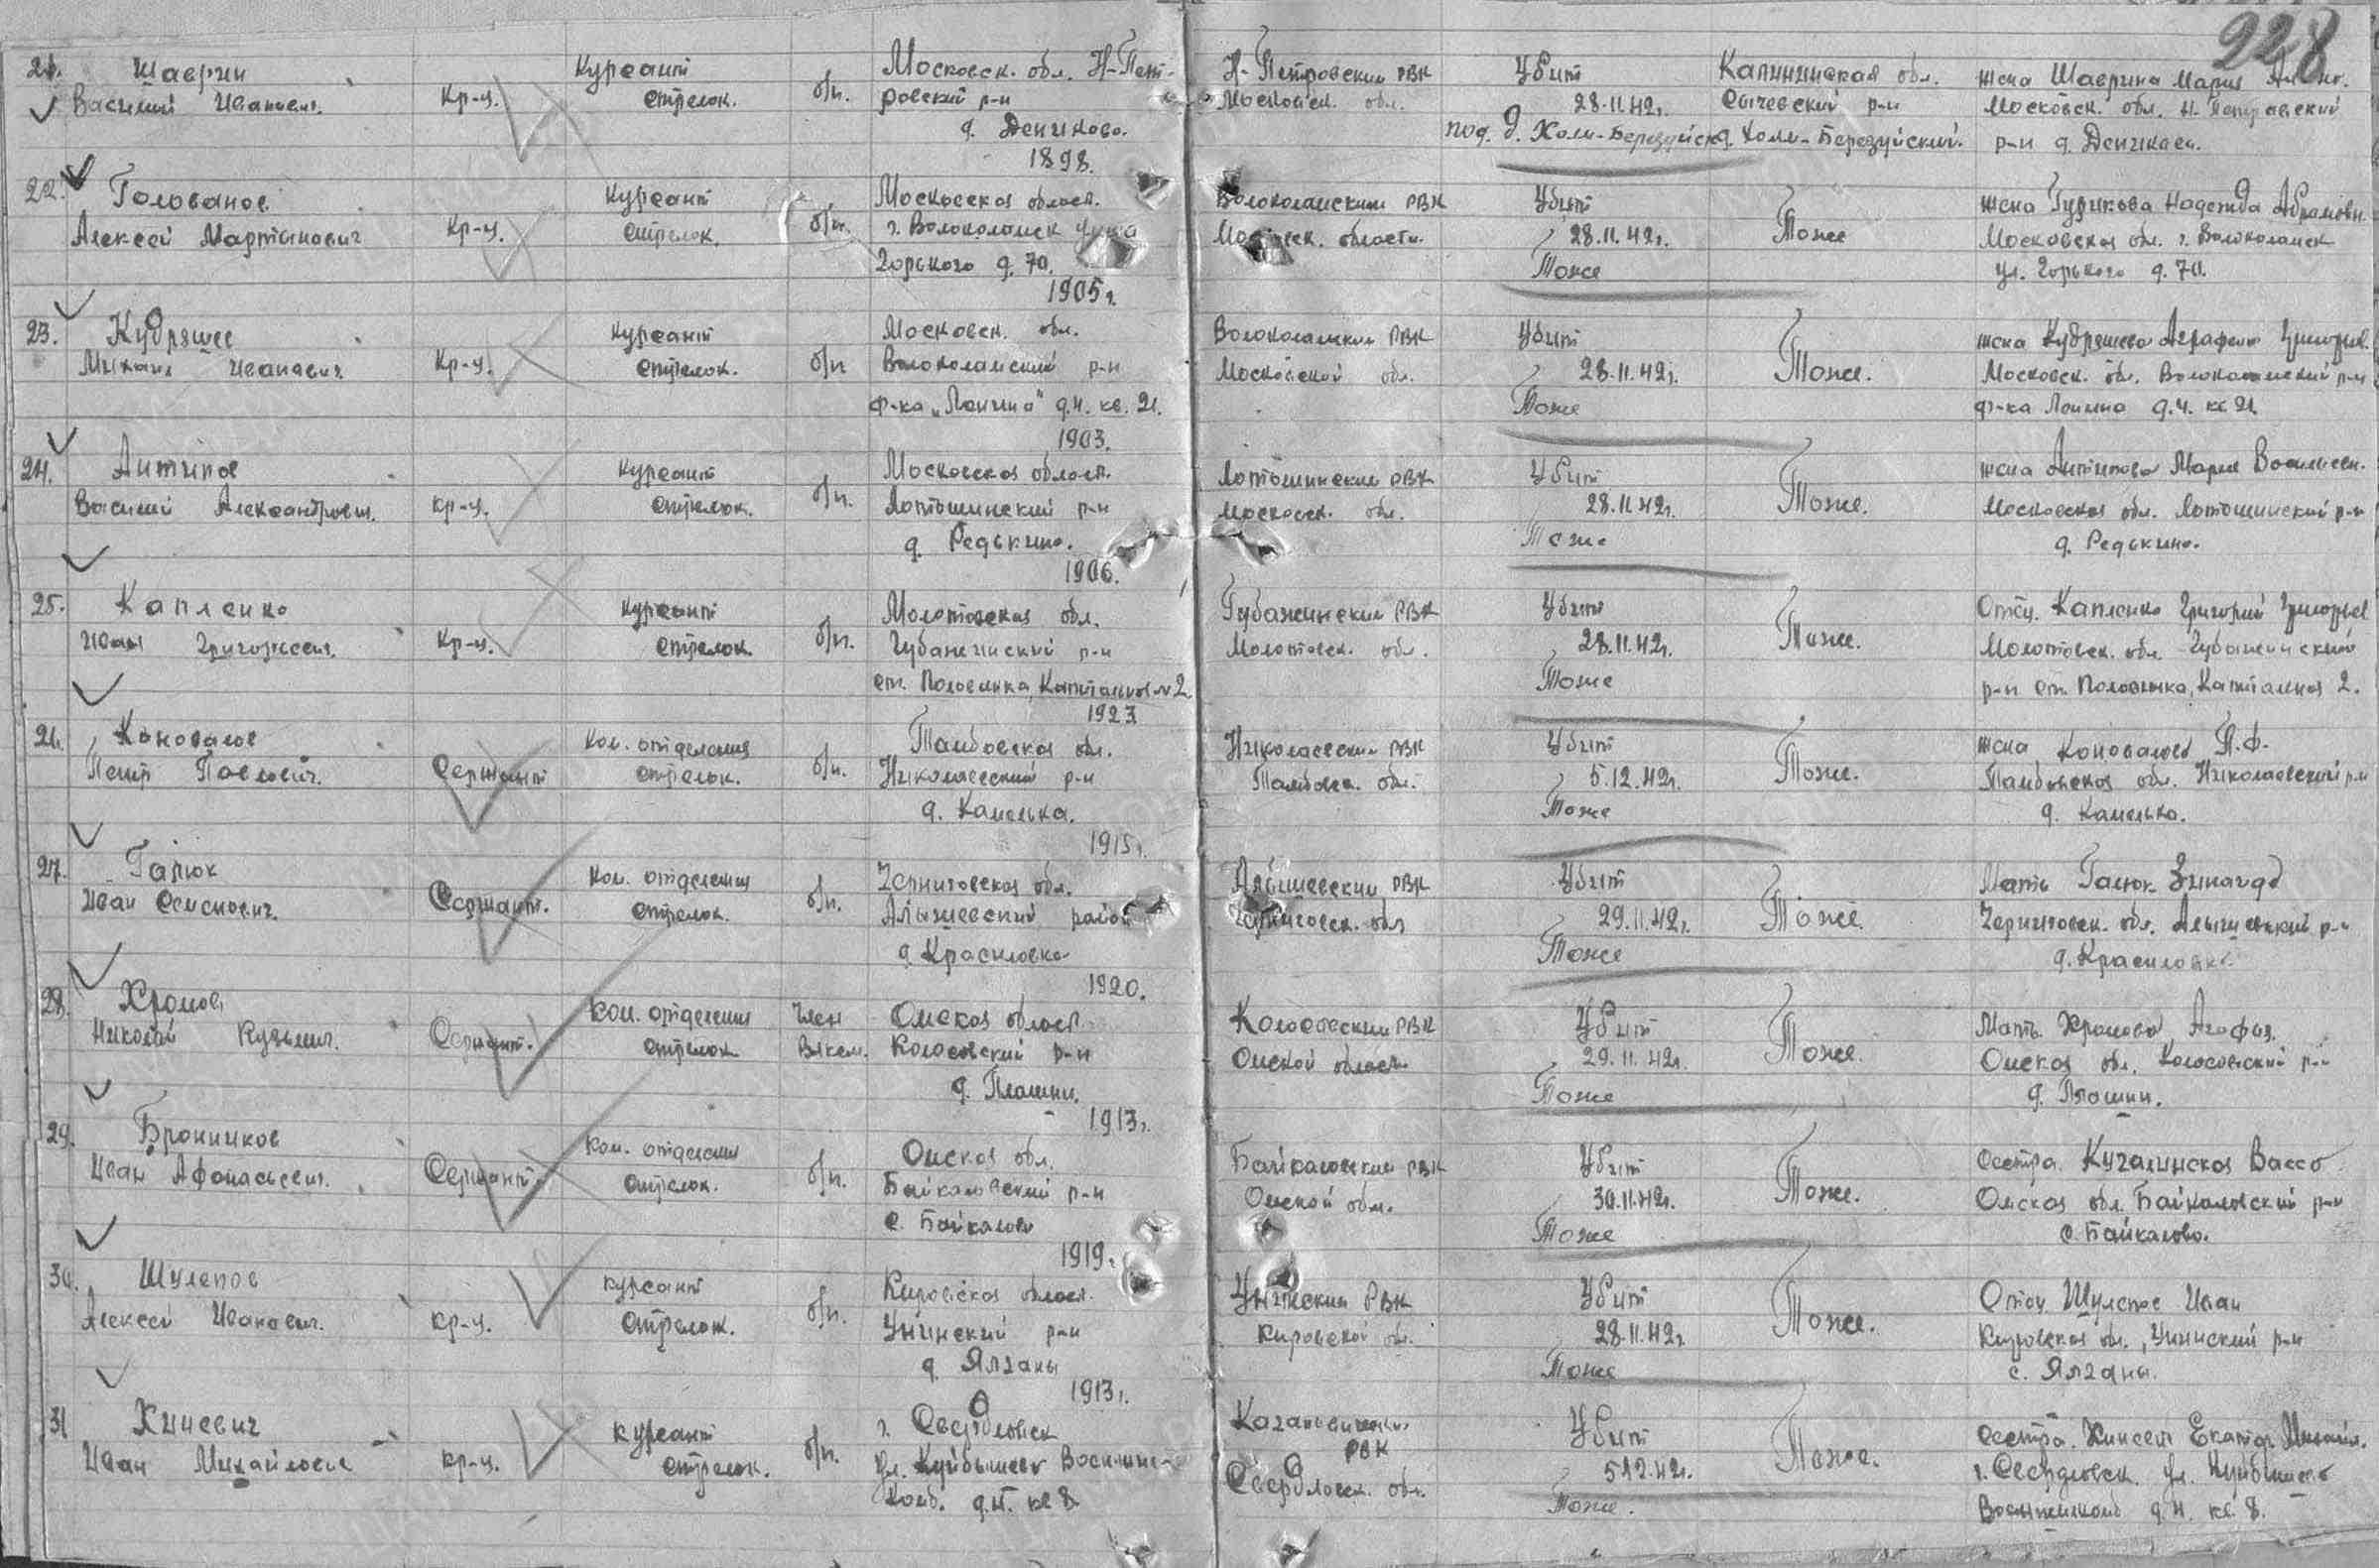 228
21. Шаврин
Василий Иванович. Кр-ц. Курсант стрелок. б/п. Московск. обл. Н-Пет-
ровский р-н
д. Деников.
1898. Н-Петровский РВК
Московск. обл. Убит
28.11.42г.
под д. Холм-Березуйск. Калининская обл.
Сычевский р-н
д. Холм-Березуйский. жена Шаврина Мария
Московск. обл. Н. Петровский
р-н д.
22. Голованов
Алексей Мартынович Кр-ц. Курсант
стрелок. б/п. Московская област.
г. Волоколамск улица
Горького д. 70.
1905г. Волоколамский РВК
Московск. области. Убит
28.11.42г.
Тоже Тоже жена Гурикова Надежда Абрамовн.
Московская обл. г. Волоколамск
ул. Горького д. 70.
23. Кудряшев
Михаил Иванович Кр-ц. Курсант
стрелок. б/п Московск. обл.
Волоколамский р-н
ф-ка "Лонино" д.4. кв. 21.
1903. Волоколамский РВК
Московской обл. Убит
28.11.42г.
Тоже Тоже. жена Кудряшева Аграфена Григорьев.
Московск. обл. Волоколамский р-н
ф-ка Лонино д.4. кв 21.
24. Антипов
Василий Александрович. кр-ц. Курсант
стрелок. б/п. Московская област.
Лотошинский р-н
д. Редькино.
1906. Лотошинский РВК
Московск. обл. Убит
28.11.42г.
Тоже Тоже. жена Антипова Мария Васильевн.
Московская обл. Лотошинский р-н
д. Редькино.
25. Капленко
Иван Григорьевич. Кр-ц. Курсант
стрелок. б/п. Молотовская обл.
Губахинский р-н
ст. Половинка, Капитальная №2
1923 Губахинский РВК
Молотовск. обл. Убит
28.11.42г.
Тоже Тоже. Отец. Капленко Григорий Григорьев.
Молотовск. обл. Губахинский
р-н ст. Половинка, Капитальная 2.
26. Коновалов
Петр Павлович. Сержант Ком. отделения
стрелок. б/п. Тамбовская обл.
Николаевский р-н
д. Каменка.
1915г. Николаевский РВК
Тамбовск. обл. Убит
5.12.42г.
Тоже Тоже. жена Коновалова П.Ф.
Тамбовская обл. Николаевский р-н
д. Каменка.
27. Галюк
Иван Семенович. Сержант. Ком. отделения
стрелок. б/п. Черниговская обл.
Алышевский район
д. Красиловка
1920. Алышевский РВК
Черниговск. обл Убит
29.11.42г.
Тоже Тоже. Мать Галюк Зинаида
Черниговск. обл. Алышевский р-н
д. Красиловка.
28. Хромов
Николай Кузьмич. Сержант. Ком. отделения
стрелок Член
Влксм. Омская област.
Колосовский р-н
д. Плашни.
1913г. Колосовский РВК
Омской области Убит
29.11.42г.
Тоже Тоже. Мать. Хромова Агафья.
Омская обл. Колосовский р-н
д. Плашни.
29. Бронников
Иван Афанасьевич. Сержант. Ком. отделения
стрелок. б/п. Омская обл.
Байкаловский р-н
с. Байкалово
1919. Байкаловский РВК
Омской обл. Убит
30.11.42г.
Тоже Тоже. Сестра Кугалинская Васса
Омская обл. Байкаловский р-н
с. Байкалово.
30. Шулепов
Алексей Иванович. кр-ц. Курсант
стрелок. б/п. Кировская област.
Унинский р-н
д. Ялганы
1913г. Унинский РВК
Кировской обл. Убит
28.11.42г.
Тоже Тоже. Отец Шулепов Иван
Кировская обл., Унинский р-н
с. Ялганы.
31 Хиневич
Иван Михайлович кр-ц. Курсант
стрелок. б/п. г. Свердловск
ул. Куйбышева
д.4. кв 8. Кагановичский
РВК
Свердловск. обл. Убит
5.12.42г.
Тоже. Тоже. Сестра. Хиневич Екатер. Михайл.
г. Свердловск. ул. Куйбышева
д.4. кв. 8.